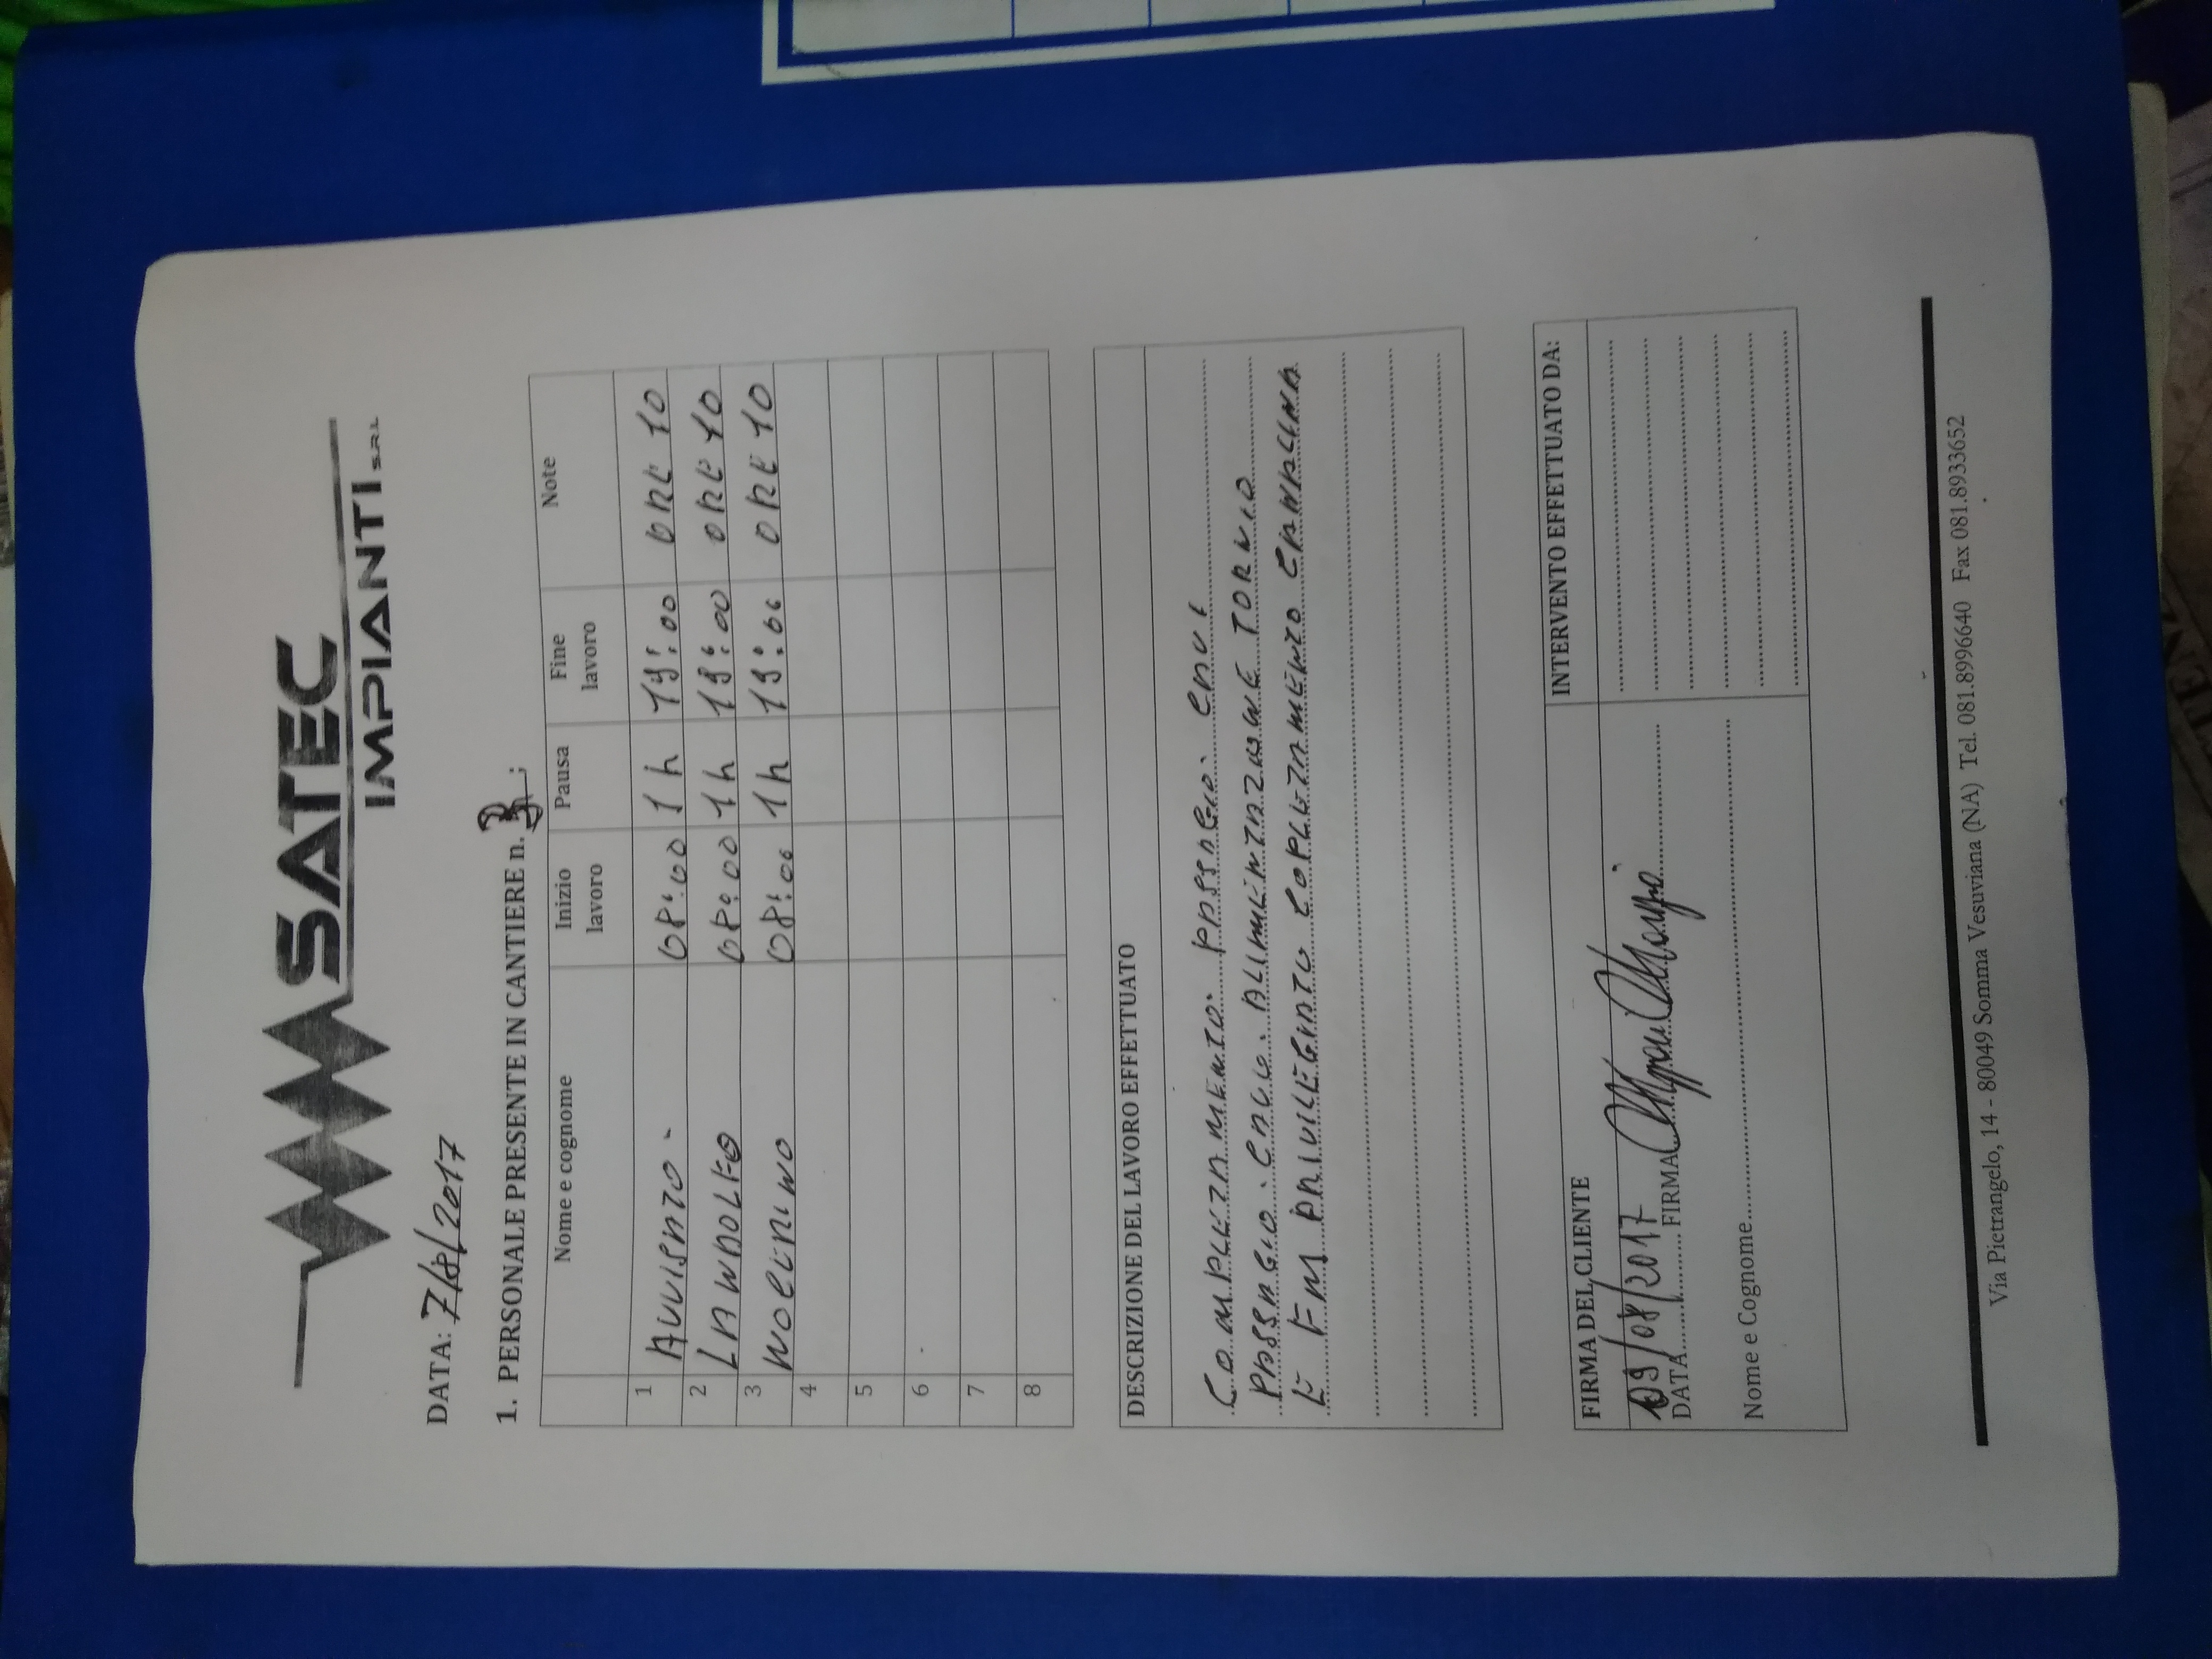 SATEC
IMPIANTI S.R.L.
DATA: 7/8/2017
1. PERSONALE PRESENTE IN CANTIERE n. 3 ;
Nome e cognome Inizio lavoro Pausa Fine lavoro Note
1 AVVISATO. 08:00 1h 19:00 ORE 10
2 LANDOLFO 08:00 1h 19:00 ORE 10
3 NOCERINO 08:00 1h 19:00 ORE 10
4
5
6
7
8
DESCRIZIONE DEL LAVORO EFFETTUATO
COMPLETAMENTO. PASSAGIO. CAVI
PASSAGIO. CAVO. ALIMENTAZIONE TORNIO
E FM COPLETAMENTO
FIRMA DEL CLIENTE INTERVENTO EFFETTUATO DA:
09/08/2017
DATA FIRMA
Nome e Cognome
Via Pietrangelo, 14 - 80049 Somma Vesuviana (NA) Tel. 081.8996640 Fax 081.8933652